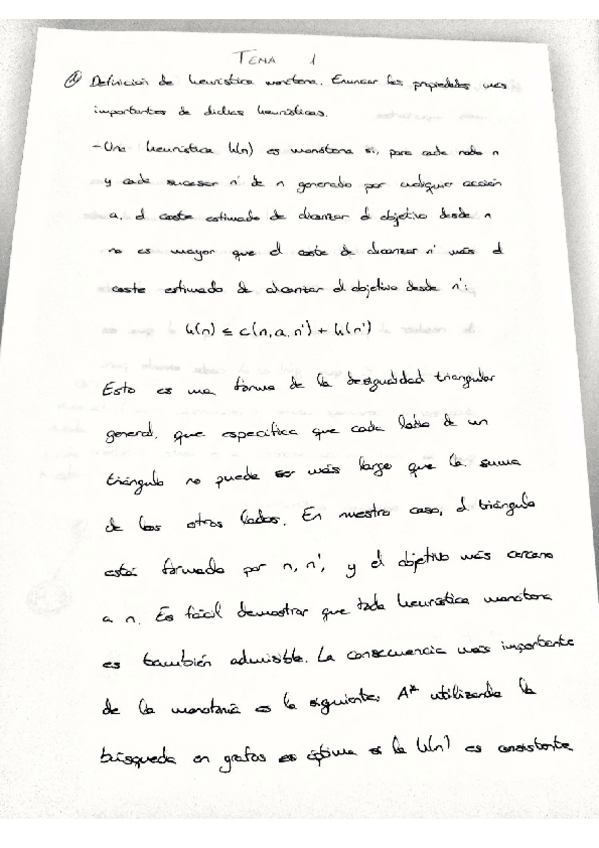 TEMA 1
① Definición de heurística monótona. Enunciar las propiedades más
importantes de dichas heurísticas.
- Una heurística h(n) es monótona si, para cada nodo n
y cada sucesor n' de n generado por cualquier acción
a, el coste estimado de alcanzar el objetivo desde n
no es mayor que el coste de alcanzar n' más el
coste estimado de alcanzar el objetivo desde n':
h(n) ≤ c(n, a, n') + h(n')
Esto es una forma de la desigualdad triangular
general, que especifica que cada lado de un
triángulo no puede ser más largo que la suma
de los otros lados. En nuestro caso, el triángulo
está formado por n, n', y el objetivo más cercano
a n. Es fácil demostrar que toda heurística monótona
es también admisible. La consecuencia más importante
de la monotonía es la siguiente: A* utilizando la
búsqueda en grafos es óptima si la h(n) es consistente